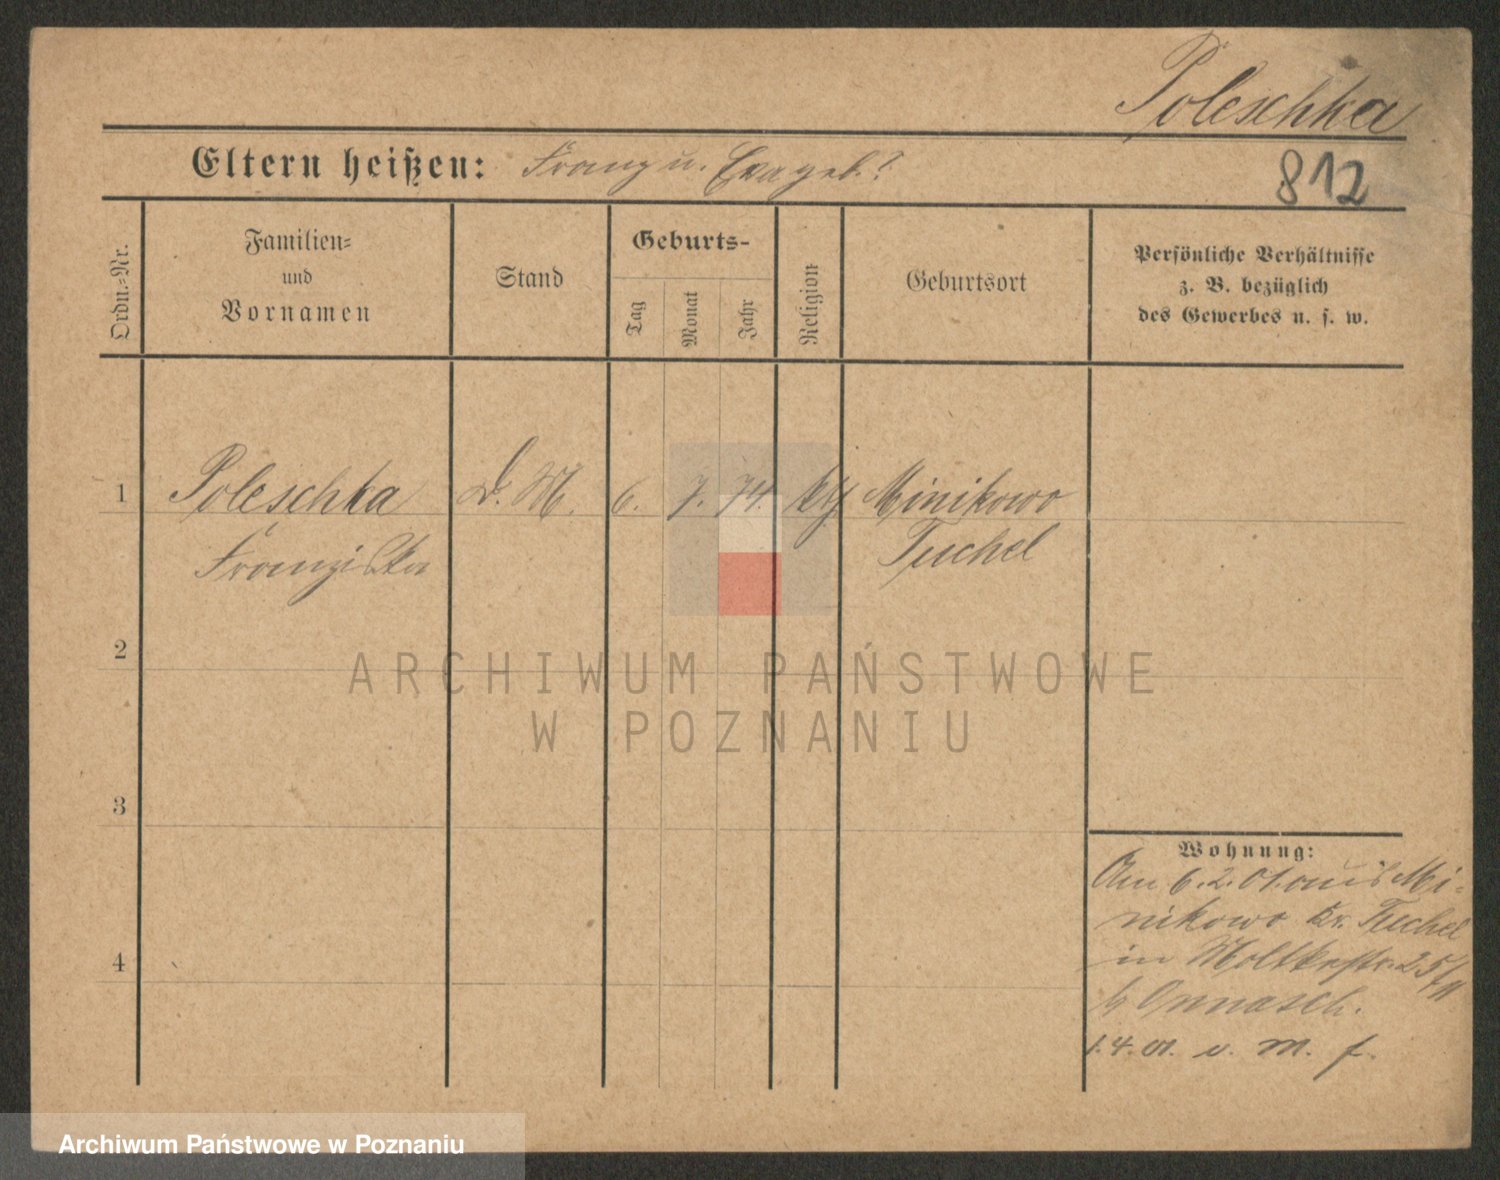 Poleschka
Eltern heißen: Franz u. Eva geb. ?
812
Ordn.-Nr.
Familien-
und
Vornamen
Stand
Geburts-
Tag
Monat
Jahr
Religion
Geburtsort
Persönliche Verhältnisse
z. B. bezüglich
des Gewerbes u. s. w.
1 Poleschka D. M. 6. 7. 74. kth Minikowo
Franziska Tuchel
2
ARCHIWUM PAŃSTWOWE
W POZNANIU
3
Wohnung:
Am 6. 2. 01. aus Mi-
nikowo Kr. Tuchel
4
in Moltkestr. 25/II
b/ Onnasch.
1. 4. 01. v. M. f.
Archiwum Państwowe w Poznaniu